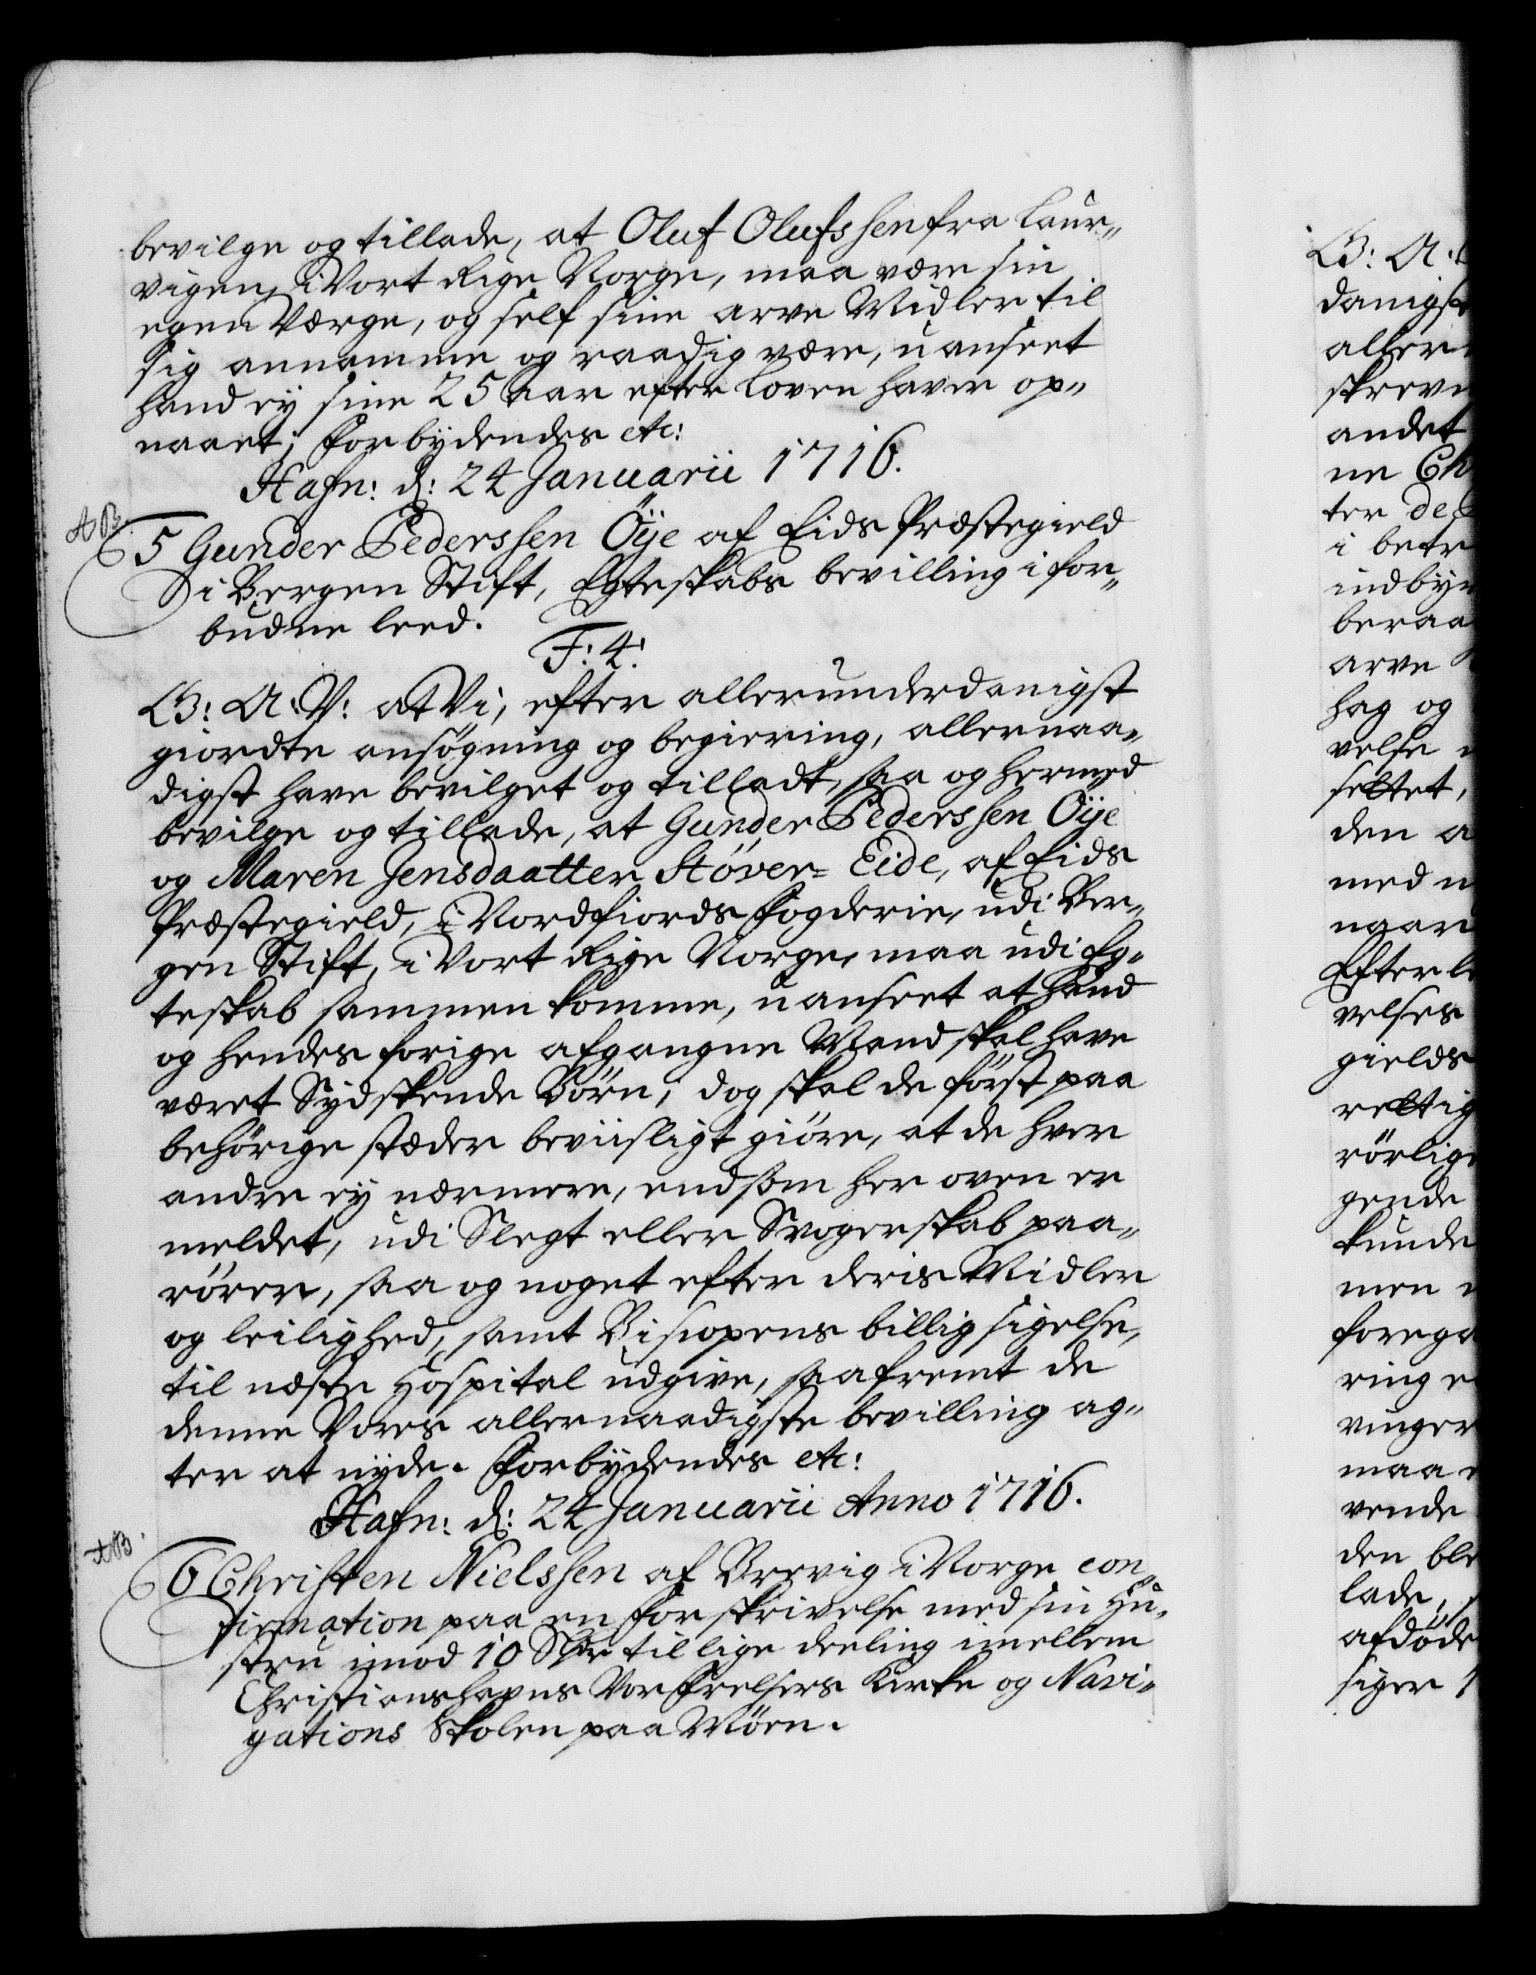 bevilge og tillade, at Oluf Olufssen fra Laur„
vigen, i Vort Rige Norge, maa være sin
egen Værge, og self sine arve Midler til
sig annamme og raadig være, uanseet
hand ey sine 25 aar efter Loven haver op„
naaet; Forbydendes etc:
Hafn: d: 24 Januarii 1716.
AB.
5 Gunder Pederssen Öije af Eids Præstegield
i Bergen Stift, Egteskabs bevilling i for„
budne leed.
F: 4:
G: A: V: at Vi, efter allerunderdanigst
giordte ansøgning og begiering, allernaa„
digst have bevilget og tilladt, saa og hermed
bevilge og tillade, at Gunder Pederssen Öije
og Maren Jensdaatter Støver= Eide, af Eids
Præstegield, i Nordfiords Fogderie, udi Ber„
gen Stift, i Vort Rige Norge, maa udi Eg„
teskab sammen komme, uanseet at hand
og hendes forige afgangne Mand skal have
været Sydskende Börn; dog skal de först paa
behörige stæder beviisligt giöre, at de hver
andre ey nærmere, end som her oven er
meldet, udi Slegt eller Svogerskab paa„
rörer, saa og noget efter deris Midler
og leilighed, samt Biscopens billig sigelse,
til næste Hospital udgive, saafremt de
denne Vores allernaadigste bevilling ag„
ter at nyde. Forbydendes etc:
Hafn: d: 24 Januarii Anno 1716.
AB.
6 Christen Nielssen af Brevig i Norge con„
firmation paa en forskrivelse med sin Hu„
stru imod 10 Sldr til lige deeling imellem
Christianshavns Vor Frelsers Kirke og Navi„
gations Skolen paa Möen.
B: A:
danigst
aller
skreve
andet
ne Ch
ter de
i betr
indbyr
beraa
arve
hag og
velse
settet,
den a
med n
ngan
Efterle
velses
gields
rettig
rörlige
gende
kunde
men
forega
ring e
ringer
maa
vende
den ble
lade,
afdöde
siger